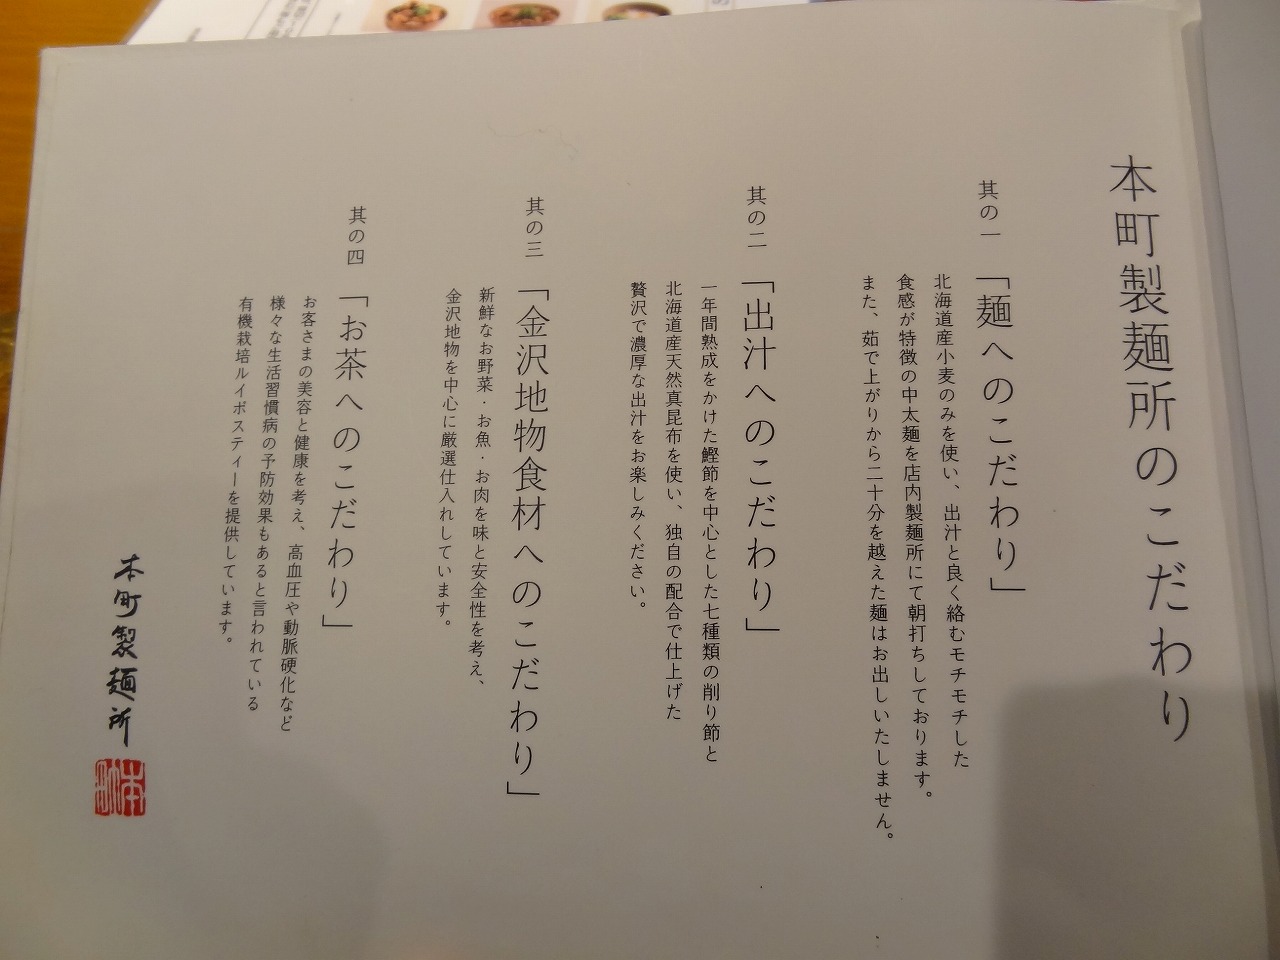 本町製麺所のこだわり
其の一
「麺へのこだわり」
北海道産小麦のみを使い、出汁と良く絡むモチモチした
食感が特徴の中太麺を店内製麺所にて朝打ちしております。
また、茹で上がりから二十分を越えた麺はお出しいたしません。
其の二
「出汁へのこだわり」
一年間熟成をかけた鰹節を中心とした七種類の削り節と
北海道産天然真昆布を使い、独自の配合で仕上げた
贅沢で濃厚な出汁をお楽しみください。
其の三
「金沢地物食材へのこだわり」
新鮮なお野菜・お魚・お肉を味と安全性を考え、
金沢地物を中心に厳選仕入れしています。
其の四
「お茶へのこだわり」
お客さまの美容と健康を考え、高血圧や動脈硬化など
様々な生活習慣病の予防効果もあると言われている
有機栽培ルイボスティーを提供しています。
本町製麺所
本町